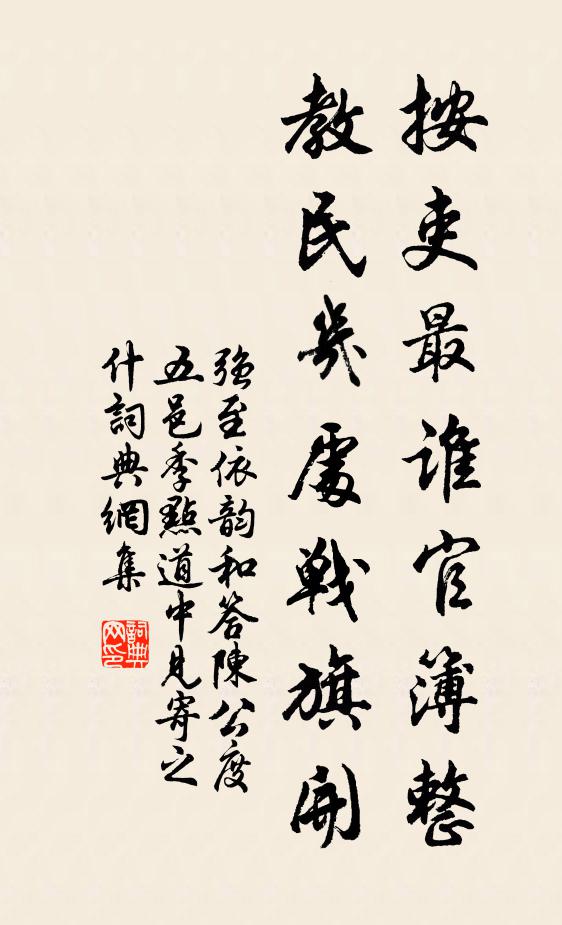 按吏最誰官簿整
教民幾處戰旗開
強至依韵和答陳公度
五邑季點道中見寄之
什詞典網集
詞典
网印